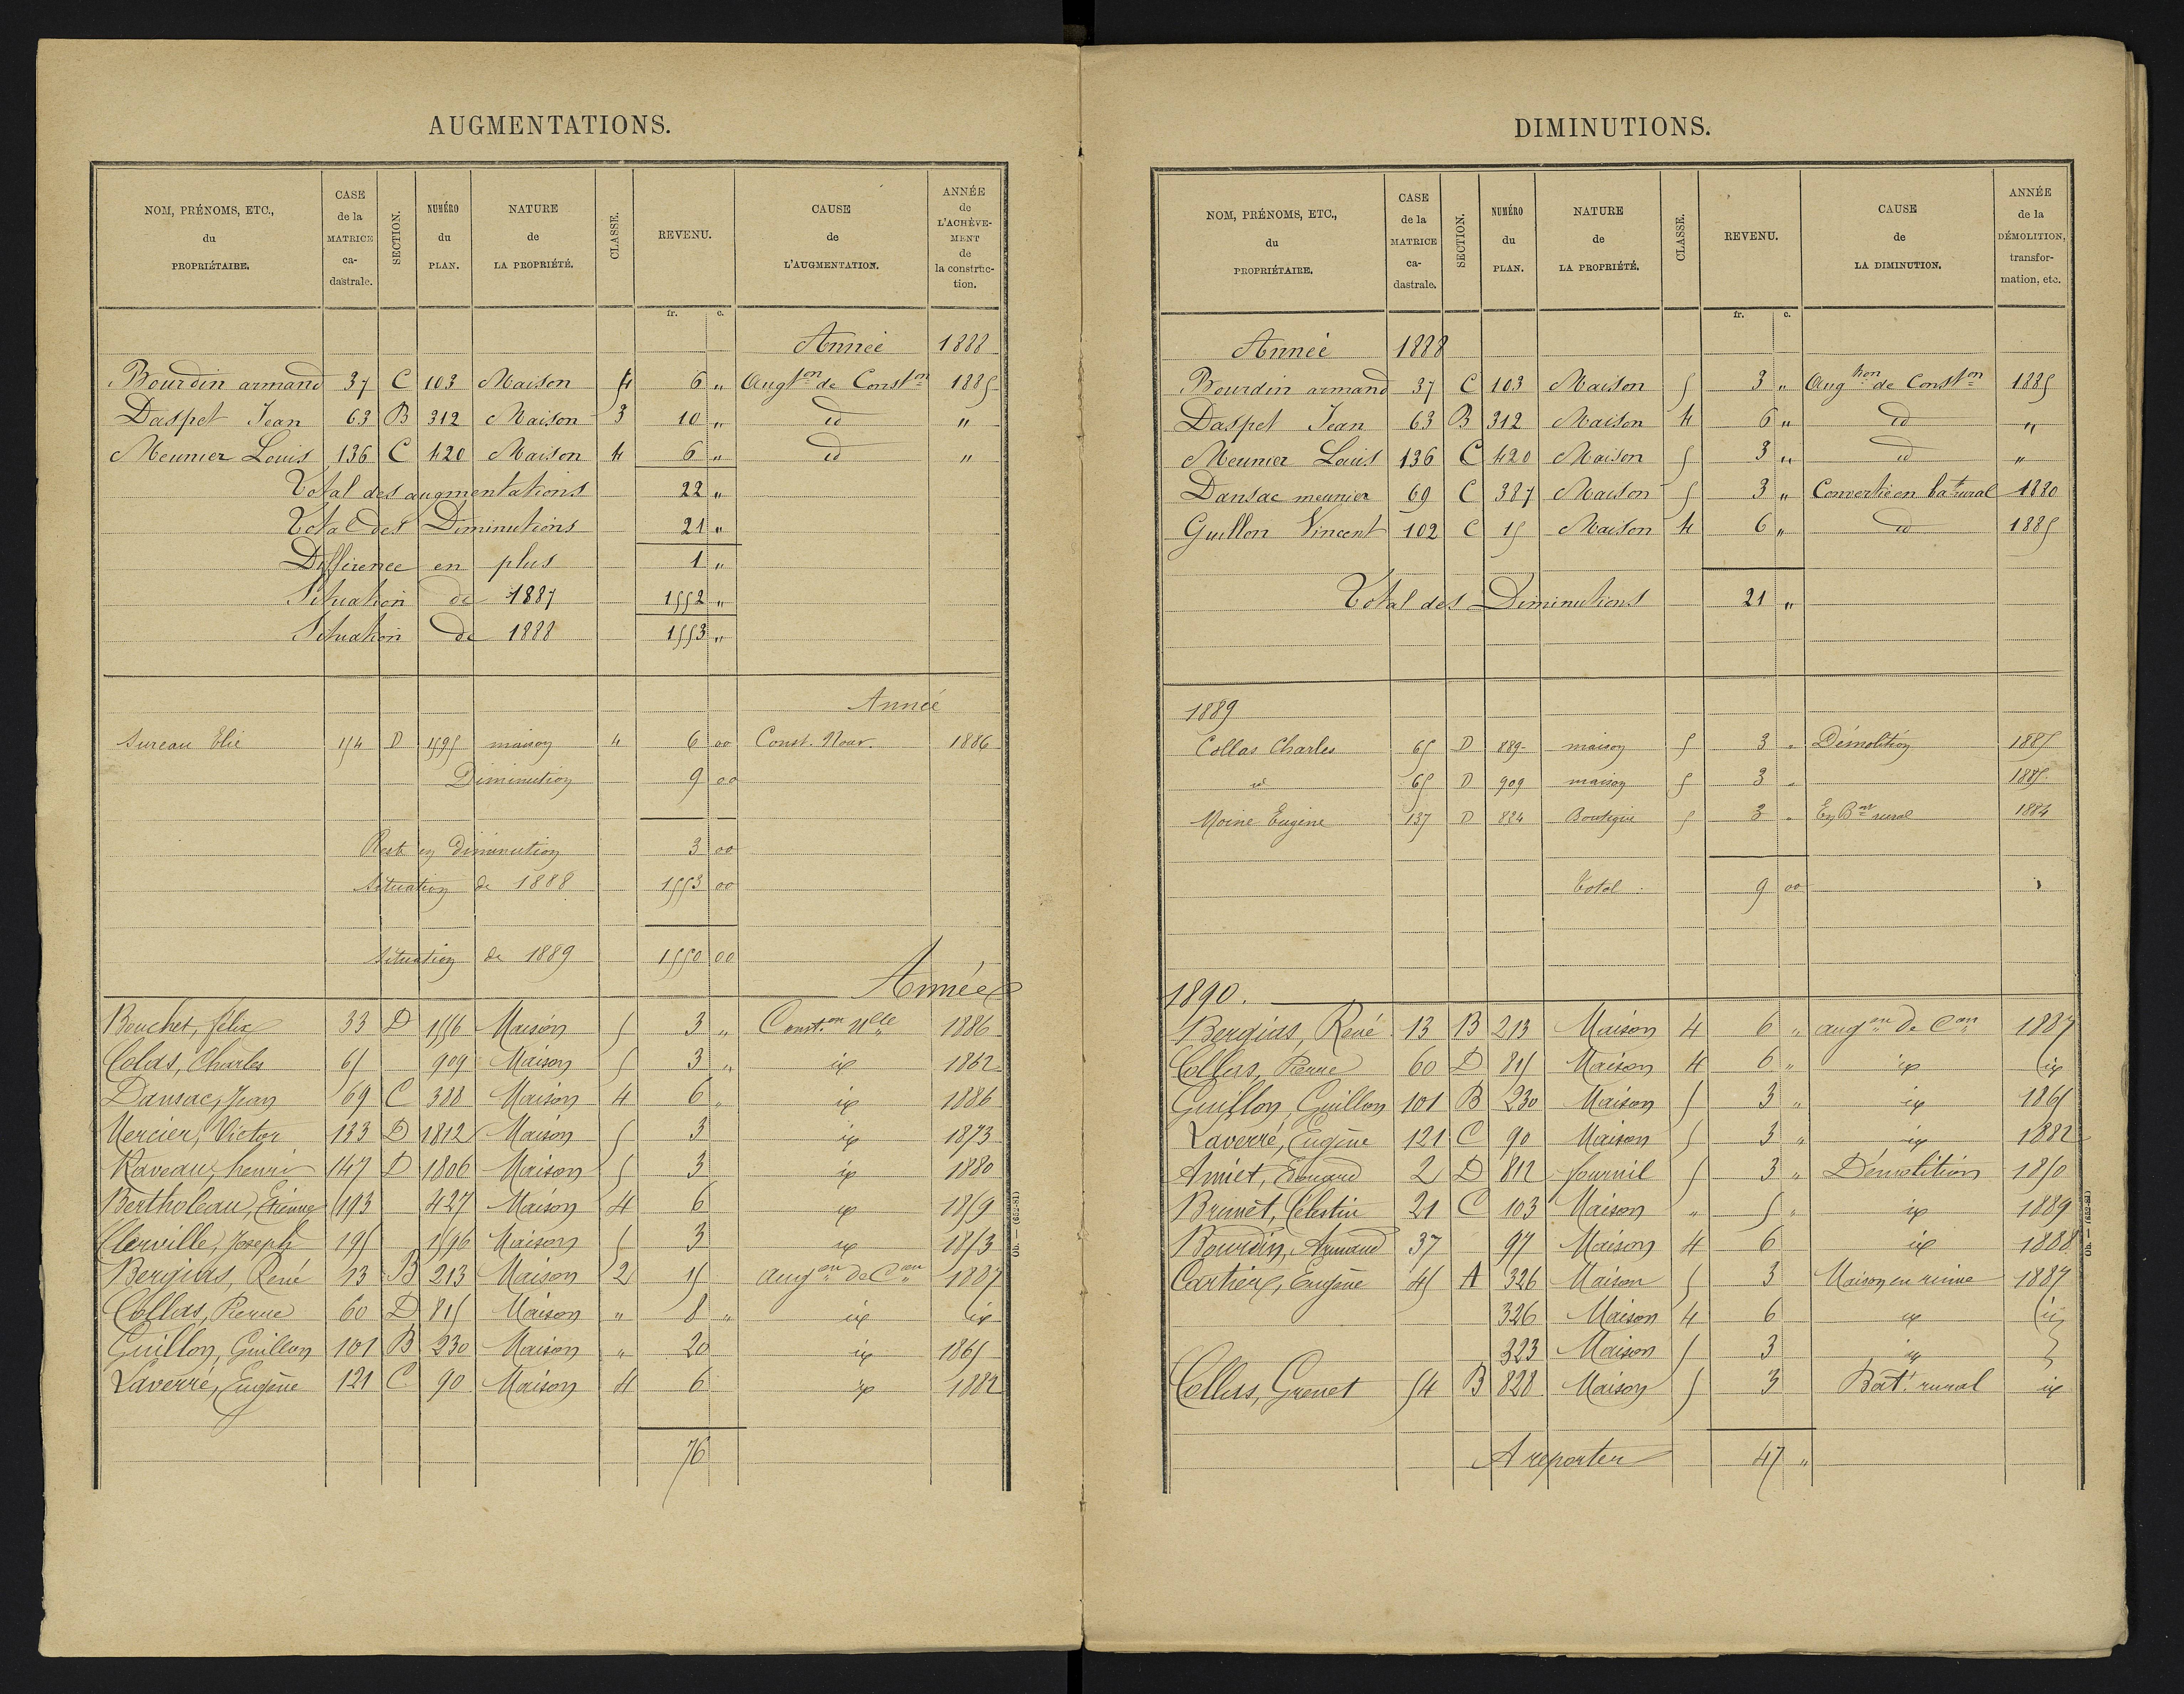 AUGMENTATIONS.
NOM, PRÉNOMS, ETC., du PROPRIÉTAIRE. CASE de la MATRICE ca-dastrale. SECTION. NUMÉRO du PLAN. NATURE de LA PROPRIÉTÉ. CLASSE. REVENU. CAUSE de L'AUGMENTATION. ANNÉE de L'ACHÈVE-MENT de la construc-tion.
fr. c.
Année 1888
Bourdin armand 37 C 103 Maison 4 6 " Augt^on de Const^on 1885
Daspet Jean 63 B 312 Maison 3 10 " id "
Meunier Louis 136 C 420 Maison 4 6 " id "
Total des augmentations 22 "
Total des Diminutions 21 "
Différence en plus 1 "
Situation de 1887 1552 "
Situation de 1888 1553 "
Année
Sureau Elie 154 D 1595 maison 4 6 00 Const. Nouv. 1886
Diminution 9 00
Reste en diminution 3 00
Situation de 1888 1553 00
Situation de 1889 1550 00
Année
Bouchet, félix 33 D 1556 Maison 5 3 " Const.^on N^lle 1886
Colas, Charles 65 909 Maison 5 3 " id 1862
Dansac, Jean 69 C 388 Maison 4 6 " id 1886
Mercier, Victor 133 D 1812 Maison 5 3 id 1873
Raveau, henri 147 D 1806 Maison 5 3 id 1880
Bertholeau, Etienne 193 427 Maison 4 6 id 1859
Clerville, Joseph 195 1596 Maison 5 3 id 1853
Bergias, René 13 B 213 Maison 2 15 aug^on de C^on 1887
Collas, Pierre 60 D 815 Maison " 8 " id id
Guillon, Guillon 101 B 230 Maison " 20 id 1865
Laverré, Eugène 121 C 90 Maison 4 6 id 1882
76
Ob. — (652-81)
DIMINUTIONS.
NOM, PRÉNOMS, ETC., du PROPRIÉTAIRE. CASE de la MATRICE ca-dastrale. SECTION. NUMÉRO du PLAN. NATURE de LA PROPRIÉTÉ. CLASSE. REVENU. CAUSE de LA DIMINUTION. ANNÉE de la DÉMOLITION, transfor-mation, etc.
fr. c.
Année 1888
Bourdin armand 37 C 103 Maison 5 3 " Aug^tion de Const^on 1885
Daspet Jean 63 B 312 Maison 4 6 " id "
Meunier Louis 136 C 420 Maison 5 3 " id "
Dansac meunier 69 C 387 Maison 5 3 " Convertie en bat rural 1880
Guillon Vincent 102 C 15 Maison 4 6 " id 1885
Total des Diminutions 21 "
1889
Collas Charles 65 D 889 maison 5 3 " Démolition 1885
id 65 D 909 maison 5 3 " 1885
Moine Eugène 137 D 824 Boutique 5 3 " En B^nt rural 1884
Total. 9 00
1890.
Bergias, René 13 B 213 Maison 4 6 " aug^on de C^on 1887
Collas, Pierre 60 D 815 Maison 4 6 " id id
Guillon, Guillon 101 B 230 Maison 5 3 " id 1865
Laverré, Eugène 121 C 90 Maison 5 3 " id 1882
Amiet, Edouard 2 D 812 fournil 5 3 " Démolition 1850
Brunet, Célestin 21 C 103 Maison " 5 " id 1889
Bourdin, Armand 37 97 Maison 4 6 id 1888
Cartier, Eugène 45 A 326 Maison 5 3 Maison en ruine 1887
326 Maison 4 6 id id
323 Maison 5 3 id
Collas, Grenet 54 B 828 Maison 5 3 Bat.^t rural id
A reporter 47 "
Ob. — (652-81)